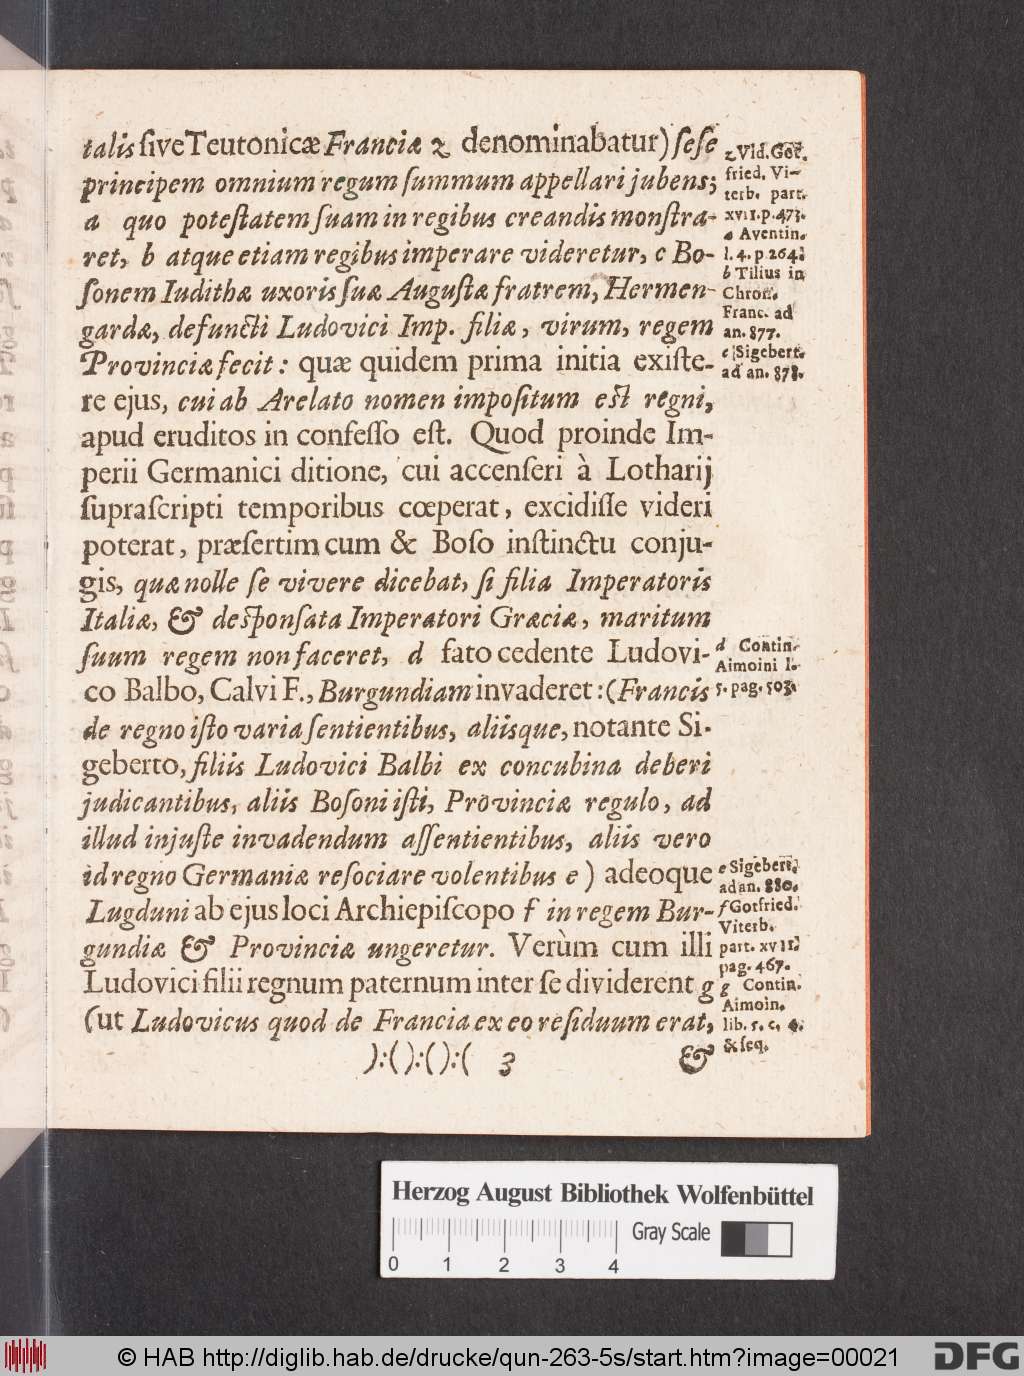 talis ſive Teutonicæ Franciæ z denominabatur) ſeſe
principem omnium regum ſummum appellari jubens;
a quo poteſtatem ſuam in regibus creandis monſtra-
ret, b atque etiam regibus imperare videretur, c Bo-
ſonem Iudithæ uxoris ſuæ Auguſtæ fratrem, Hermen-
gardæ, defuncti Ludovici Imp. filiæ, virum, regem
Provinciæ fecit: quæ quidem prima initia exiſte-
re ejus, cui ab Arelato nomen impoſitum eſt regni,
apud eruditos in confeſſo eſt. Quod proinde Im-
perii Germanici ditione, cui accenſeri à Lotharij
ſupraſcripti temporibus cœperat, excidiſſe videri
poterat, præſertim cum & Boſo inſtinctu conju-
gis, quæ nolle ſe vivere dicebat, ſi filia Imperatoris
Italiæ, & deſponſata Imperatori Græciæ, maritum
ſuum regem non faceret, d fato cedente Ludovi-
co Balbo, Calvi F., Burgundiam invaderet: (Francis
de regno iſto varia ſentientibus, aliisque, notante Si-
geberto, filiis Ludovici Balbi ex concubina deberi
judicantibus, aliis Boſoni iſti, Provinciæ regulo, ad
illud injuſte invadendum aſſentientibus, aliis vero
id regno Germaniæ reſociare volentibus e) adeoque
Lugduni ab ejus loci Archiepiſcopo f in regem Bur-
gundiæ & Provinciæ ungeretur. Verùm cum illi
Ludovici filii regnum paternum inter ſe dividerent g
(ut Ludovicus quod de Francia ex eo reſiduum erat,
):( ):( ):( 3 &
z Vid. Got.
fried. Vi-
terb. part.
xvii. p. 473.
a Aventin.
l. 4. p 264.
b Tilius in
Chron.
Franc. ad
an. 877.
c Sigebert.
ad an. 878.
d Contin.
Aimoini l.
5. pag. 503.
e Sigebert.
ad an. 880.
f Gotfried.
Viterb.
part. xvii.
pag. 467.
g Contin.
Aimoin.
lib. 5. c. 4.
& ſeq.
Herzog August Bibliothek Wolfenbüttel
Gray Scale
0 1 2 3 4
© HAB http://diglib.hab.de/drucke/qun-263-5s/start.htm?image=00021
DFG